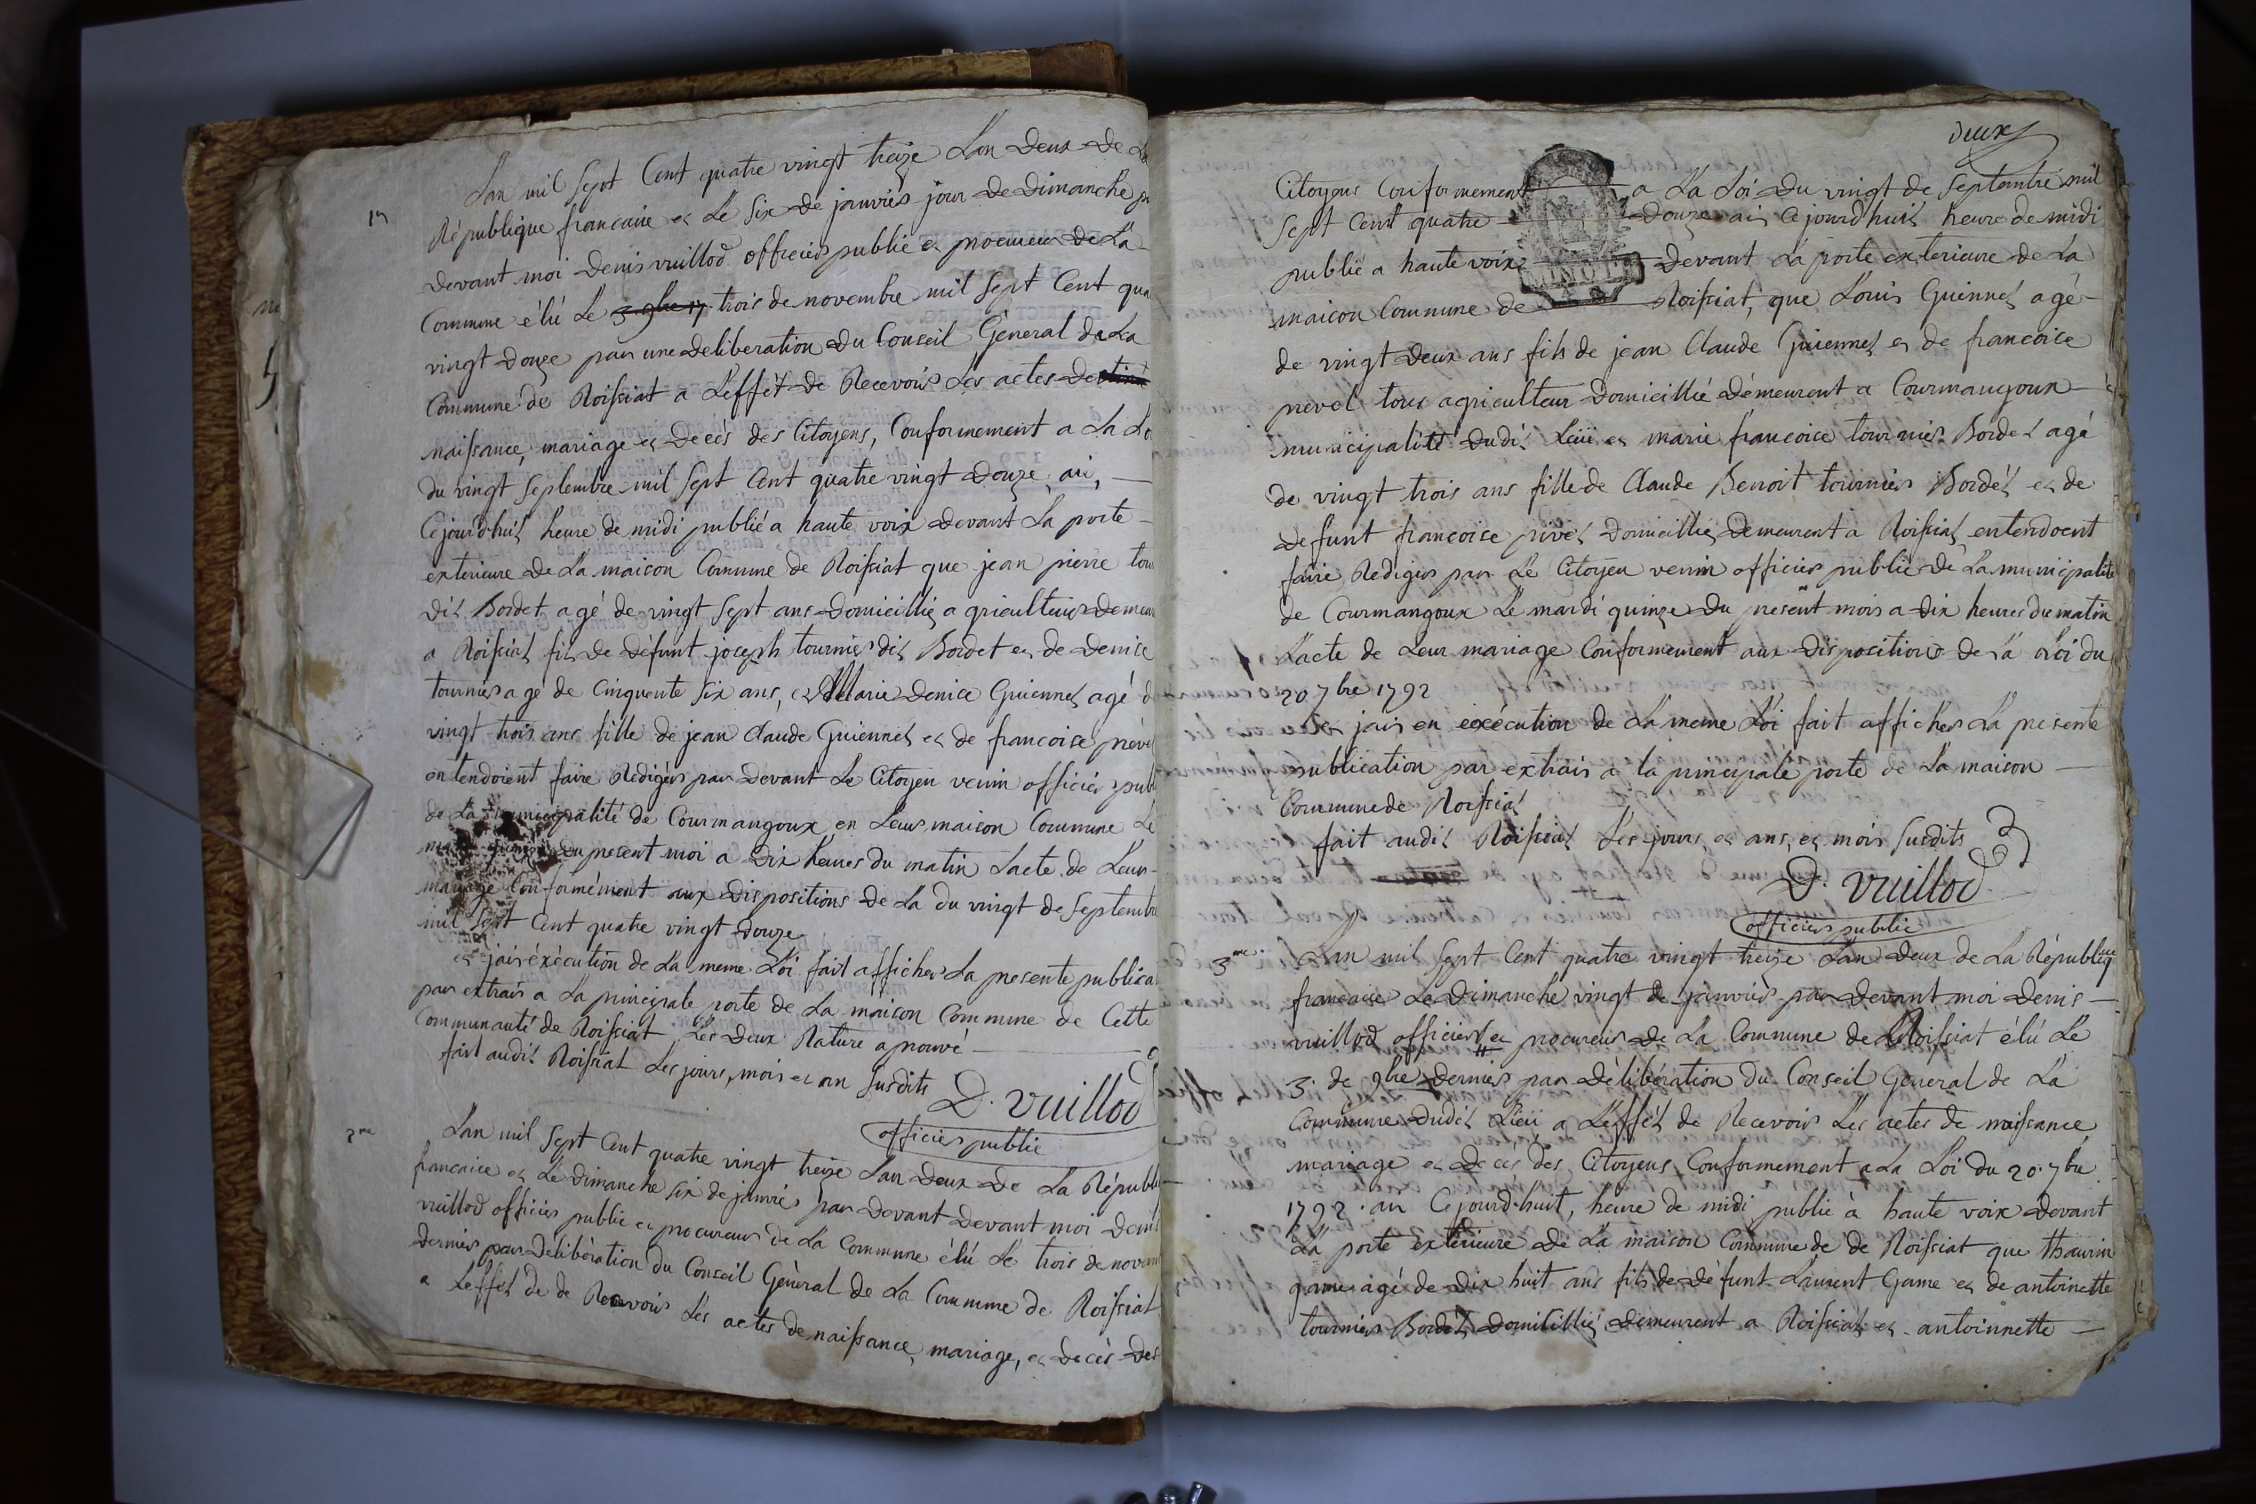 1er
L'an mil sept Cent quatre vingt treize L'an Deux De La
République francaise et Le Six De janvier jour De Dimanche
Devant moi Denis vuillod officier public et procureur De La
Commune élú Le 3 9bre 17 trois de novembre mil Sept Cent
vingt Douze par une deliberation Du Conseil Géneral De La
Commune de Roissiat a L'effét De Recevoir Les actes De
naissance, mariage et Decès des Citoyens, Conformement a La
du vingt Septembre mil Sept Cent quatre vingt Douze, ai,
Cejourd'huit heure de midi publié a haute voix Devant La porte
exterieure De La maison Commune de Roissiat que jean pierre
Dit Bordet agé de vingt Sept ans Domicillié agriculteur
a Roissiat fils De Défunt joseph tournier dit Bordet et De Denise
tournier agé de Cinquente Six ans, et Marie Denice Guiennet agé
vingt trois ans fille de jean Claude Guiennet et de francoise
entendoient faire Redigér par Devant Le Citoyen venin officier
de La municipalité de Courmangoux en Leur maison Commune Le
du present moi a Dix heures du matin L'acte De Leur
mariage Conformément aux Dispositions De La Du vingt De Septembre
mil Sept Cent quatre vingt Douze
et jai éxécution de La meme Loi fait afficher La presente
par extrais a La principale porte de La maison Commune De Cette
Communauté de Roissiat, Les Deux Rature aprouvé
fait audit Roissiat Les jours, mois et an Susdits
D. vuillod
officier public
2me
L'an mil Sept Cent quatre vingt treize L'an Deux De La
francaice et Le Dimanche Six de janvier par Devant Devant moi
vuillod officier public et procureur De La Commune élú Le trois de
dernier par Deliberation du Conseil Géneral de La Commune de Roissiat
a L'effét de de Recevoir Les actes de naissance, mariage, et Decès Des
Deux
Citoyens Conformement a La Loi Du vingt de Septembre mil
Sept Cent quatre Douze ai Cejourd'huit heure de midi
publié a haute voix Devant La porte exterieure De La
MINUTE
maison Commune De Roissiat, que Louis Guiennet agé
de vingt Deux ans fils de jean Claude Guiennet et de francoise
prevel tous agriculteur Domicillié Démeurent a Courmangoux
municipalité Dudit Leiü et marie francoice tournier Bordet agé
de vingt trois ans fille de Claude Benoit tournier Bordét et de
defunt francoise Domicillié Demeurent a Roissiat entendoent
faire Rediger par Le Citoyen venin officier public De La municipalité
de Courmangoux Le mardi quinze Du present mois a Dix heures du matin
L'acte de Leur mariage Conformement aux Dispositions de La Loi du
20 7bre 1792
et jais en exécution de La meme Loi fait afficher La presente
publication par extrais a la principale porte de La maison
Commune de Roissiat
fait audit Roissiat Les jours, et ans, et mois Susdits
D. vuillod
officier public
3me
L'an mil Sept Cent quatre vingt treize L'an Deux de La République
francaise Le Dimanche vingt de janvier par Devant moi Denis
vuillod officier et procureur De La Commune de Roissiat élú Le
3. de 9bre Dernier par Délibération Du Conseil General de La
Commune Dudit Lieü a L'effét de Recevoir Les actes De naissance
mariage et Decès Des Citoyens Conformement a La Loi Du 20. 7bre
1792. ai Cejourd'huit, heure de midi publié à haute voix Devant
La porte exterieure De La maison Commune de de Roissiat que thaurin
game agé de Dix huit ans fils De Défunt Laurent Game et de antoinette
tournier Bordét Domicillié Demeurent a Roissiat et antoinnette